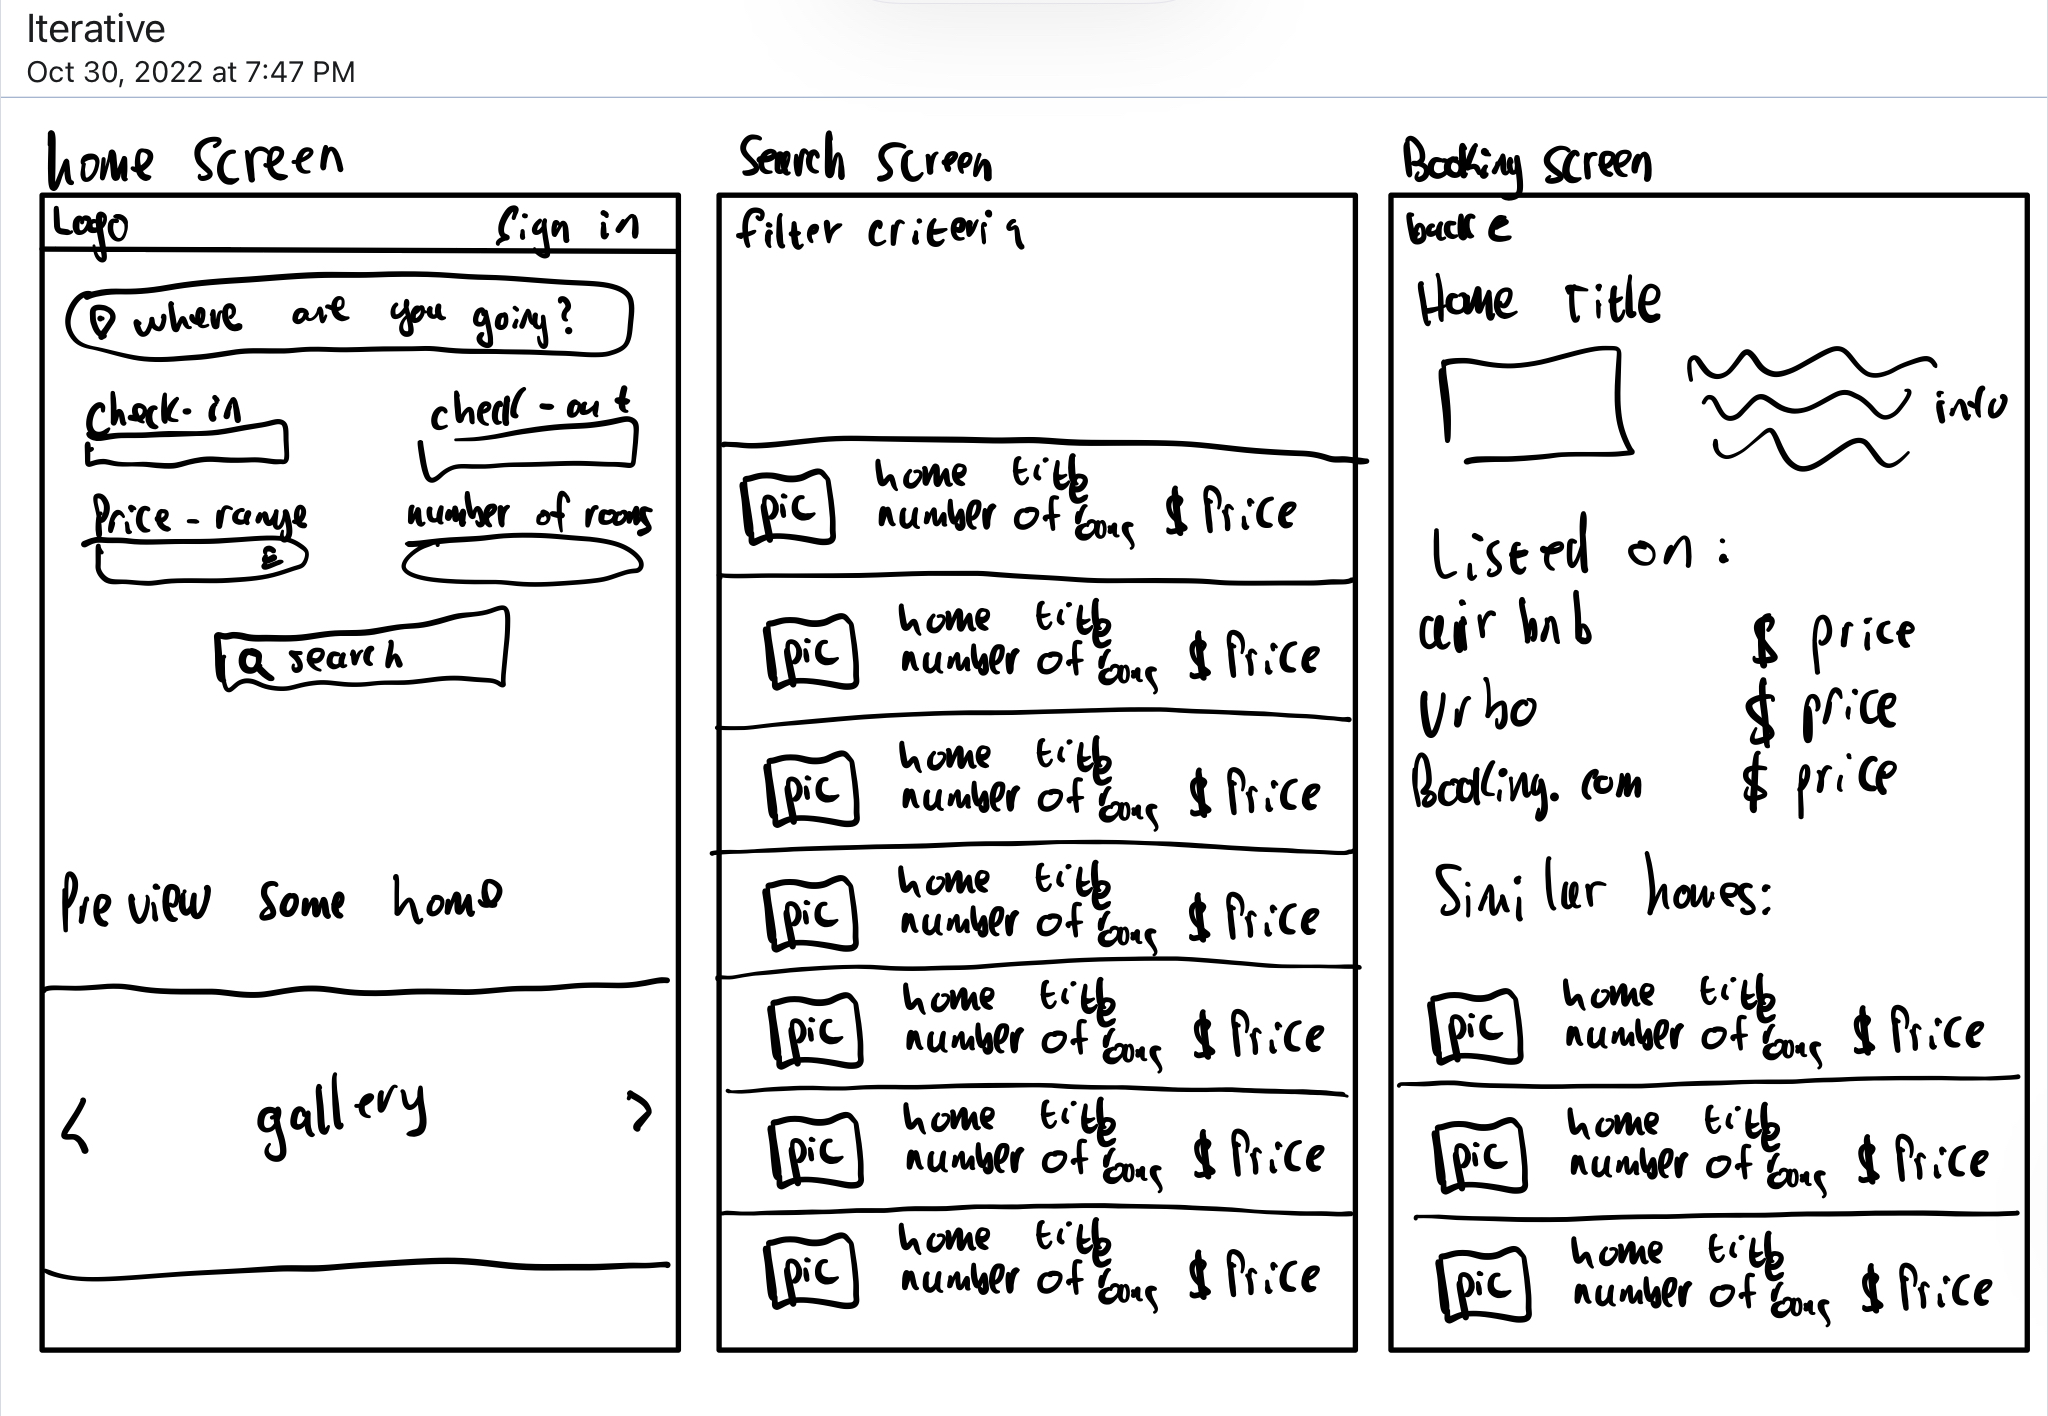 Iterative
Oct 30, 2022 at 7:47 PM
home screen
Logo Sign in
where are you going?
check-in check-out
Price-range number of rooms
$
search
Preview some home
< gallery >
Search screen
filter criteria
pic home title
number of rooms $ Price
pic home title
number of rooms $ Price
pic home title
number of rooms $ Price
pic home title
number of rooms $ Price
pic home title
number of rooms $ Price
pic home title
number of rooms $ Price
pic home title
number of rooms $ Price
Booking screen
back
Home Title
info
Listed on:
air bnb $ price
Vrbo $ price
Booking.com $ price
Similar homes:
pic home title
number of rooms $ Price
pic home title
number of rooms $ Price
pic home title
number of rooms $ Price